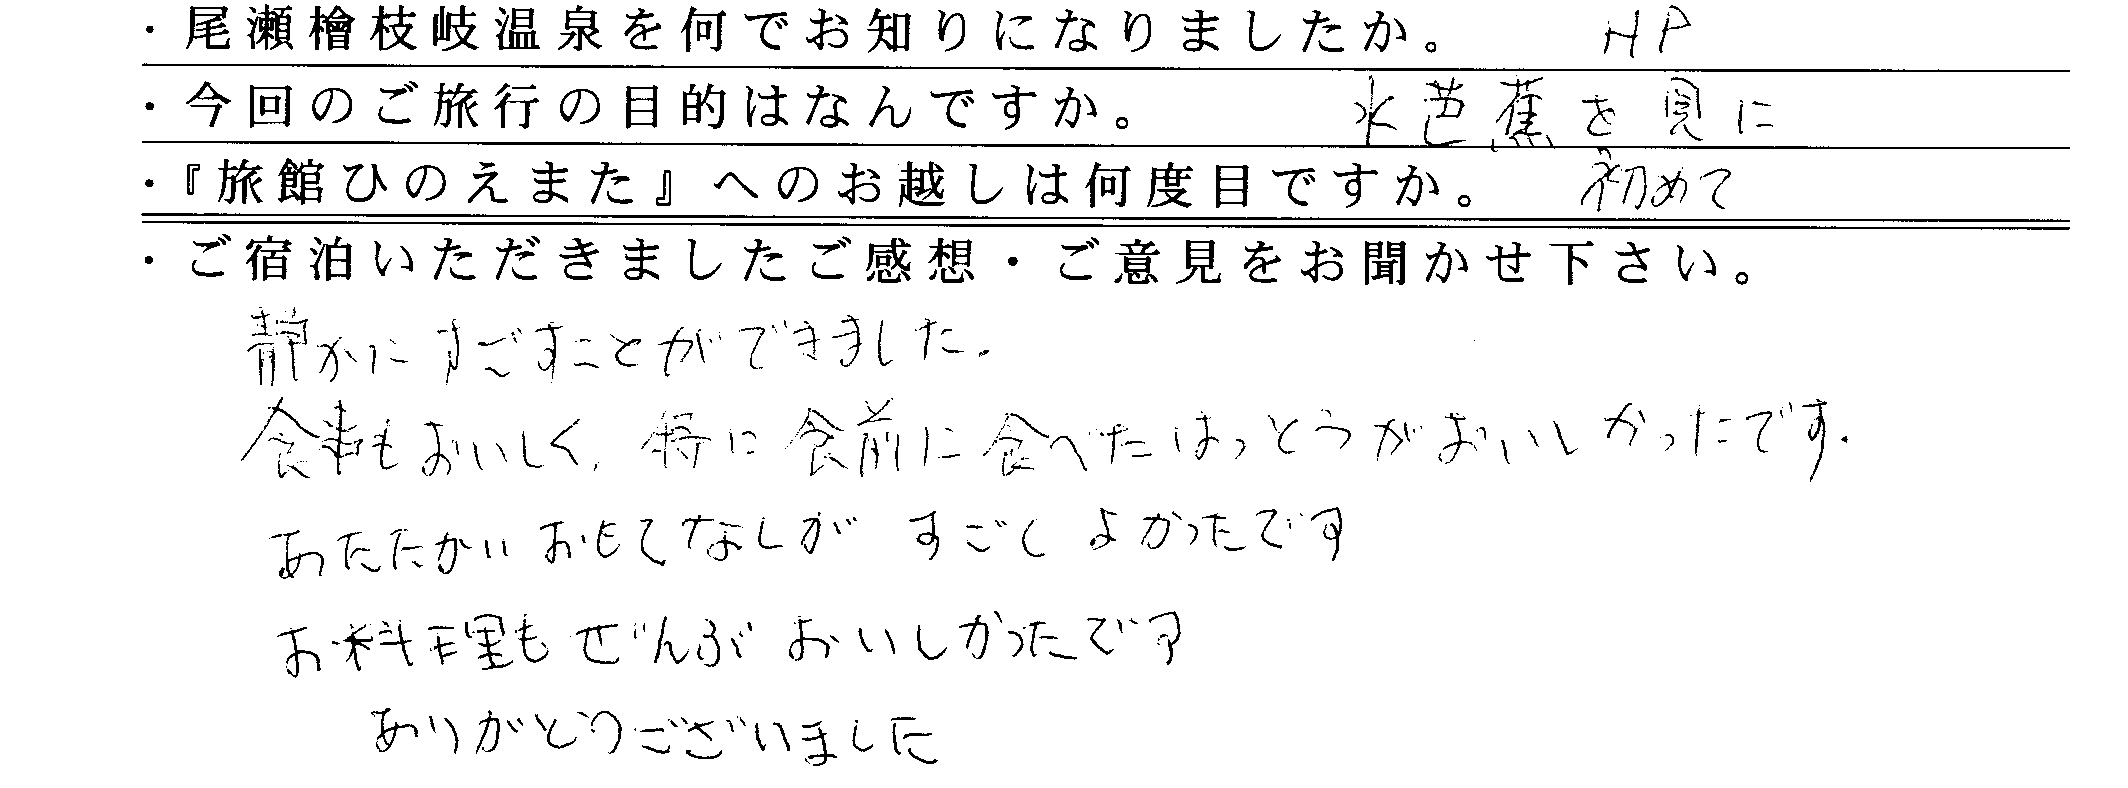 ・尾瀬檜枝岐温泉を何でお知りになりましたか。 HP
・今回のご旅行の目的はなんですか。 水芭蕉を見に
・『旅館ひのえまた』へのお越しは何度目ですか。 初めて
・ご宿泊いただきましたご感想・ご意見をお聞かせ下さい。
静かにすごすことができました.
食事もおいしく、特に食前に食べたはっとうがおいしかったです.
あたたかいおもてなしが すごくよかったです
お料理もぜんぶおいしかったです
ありがとうございました